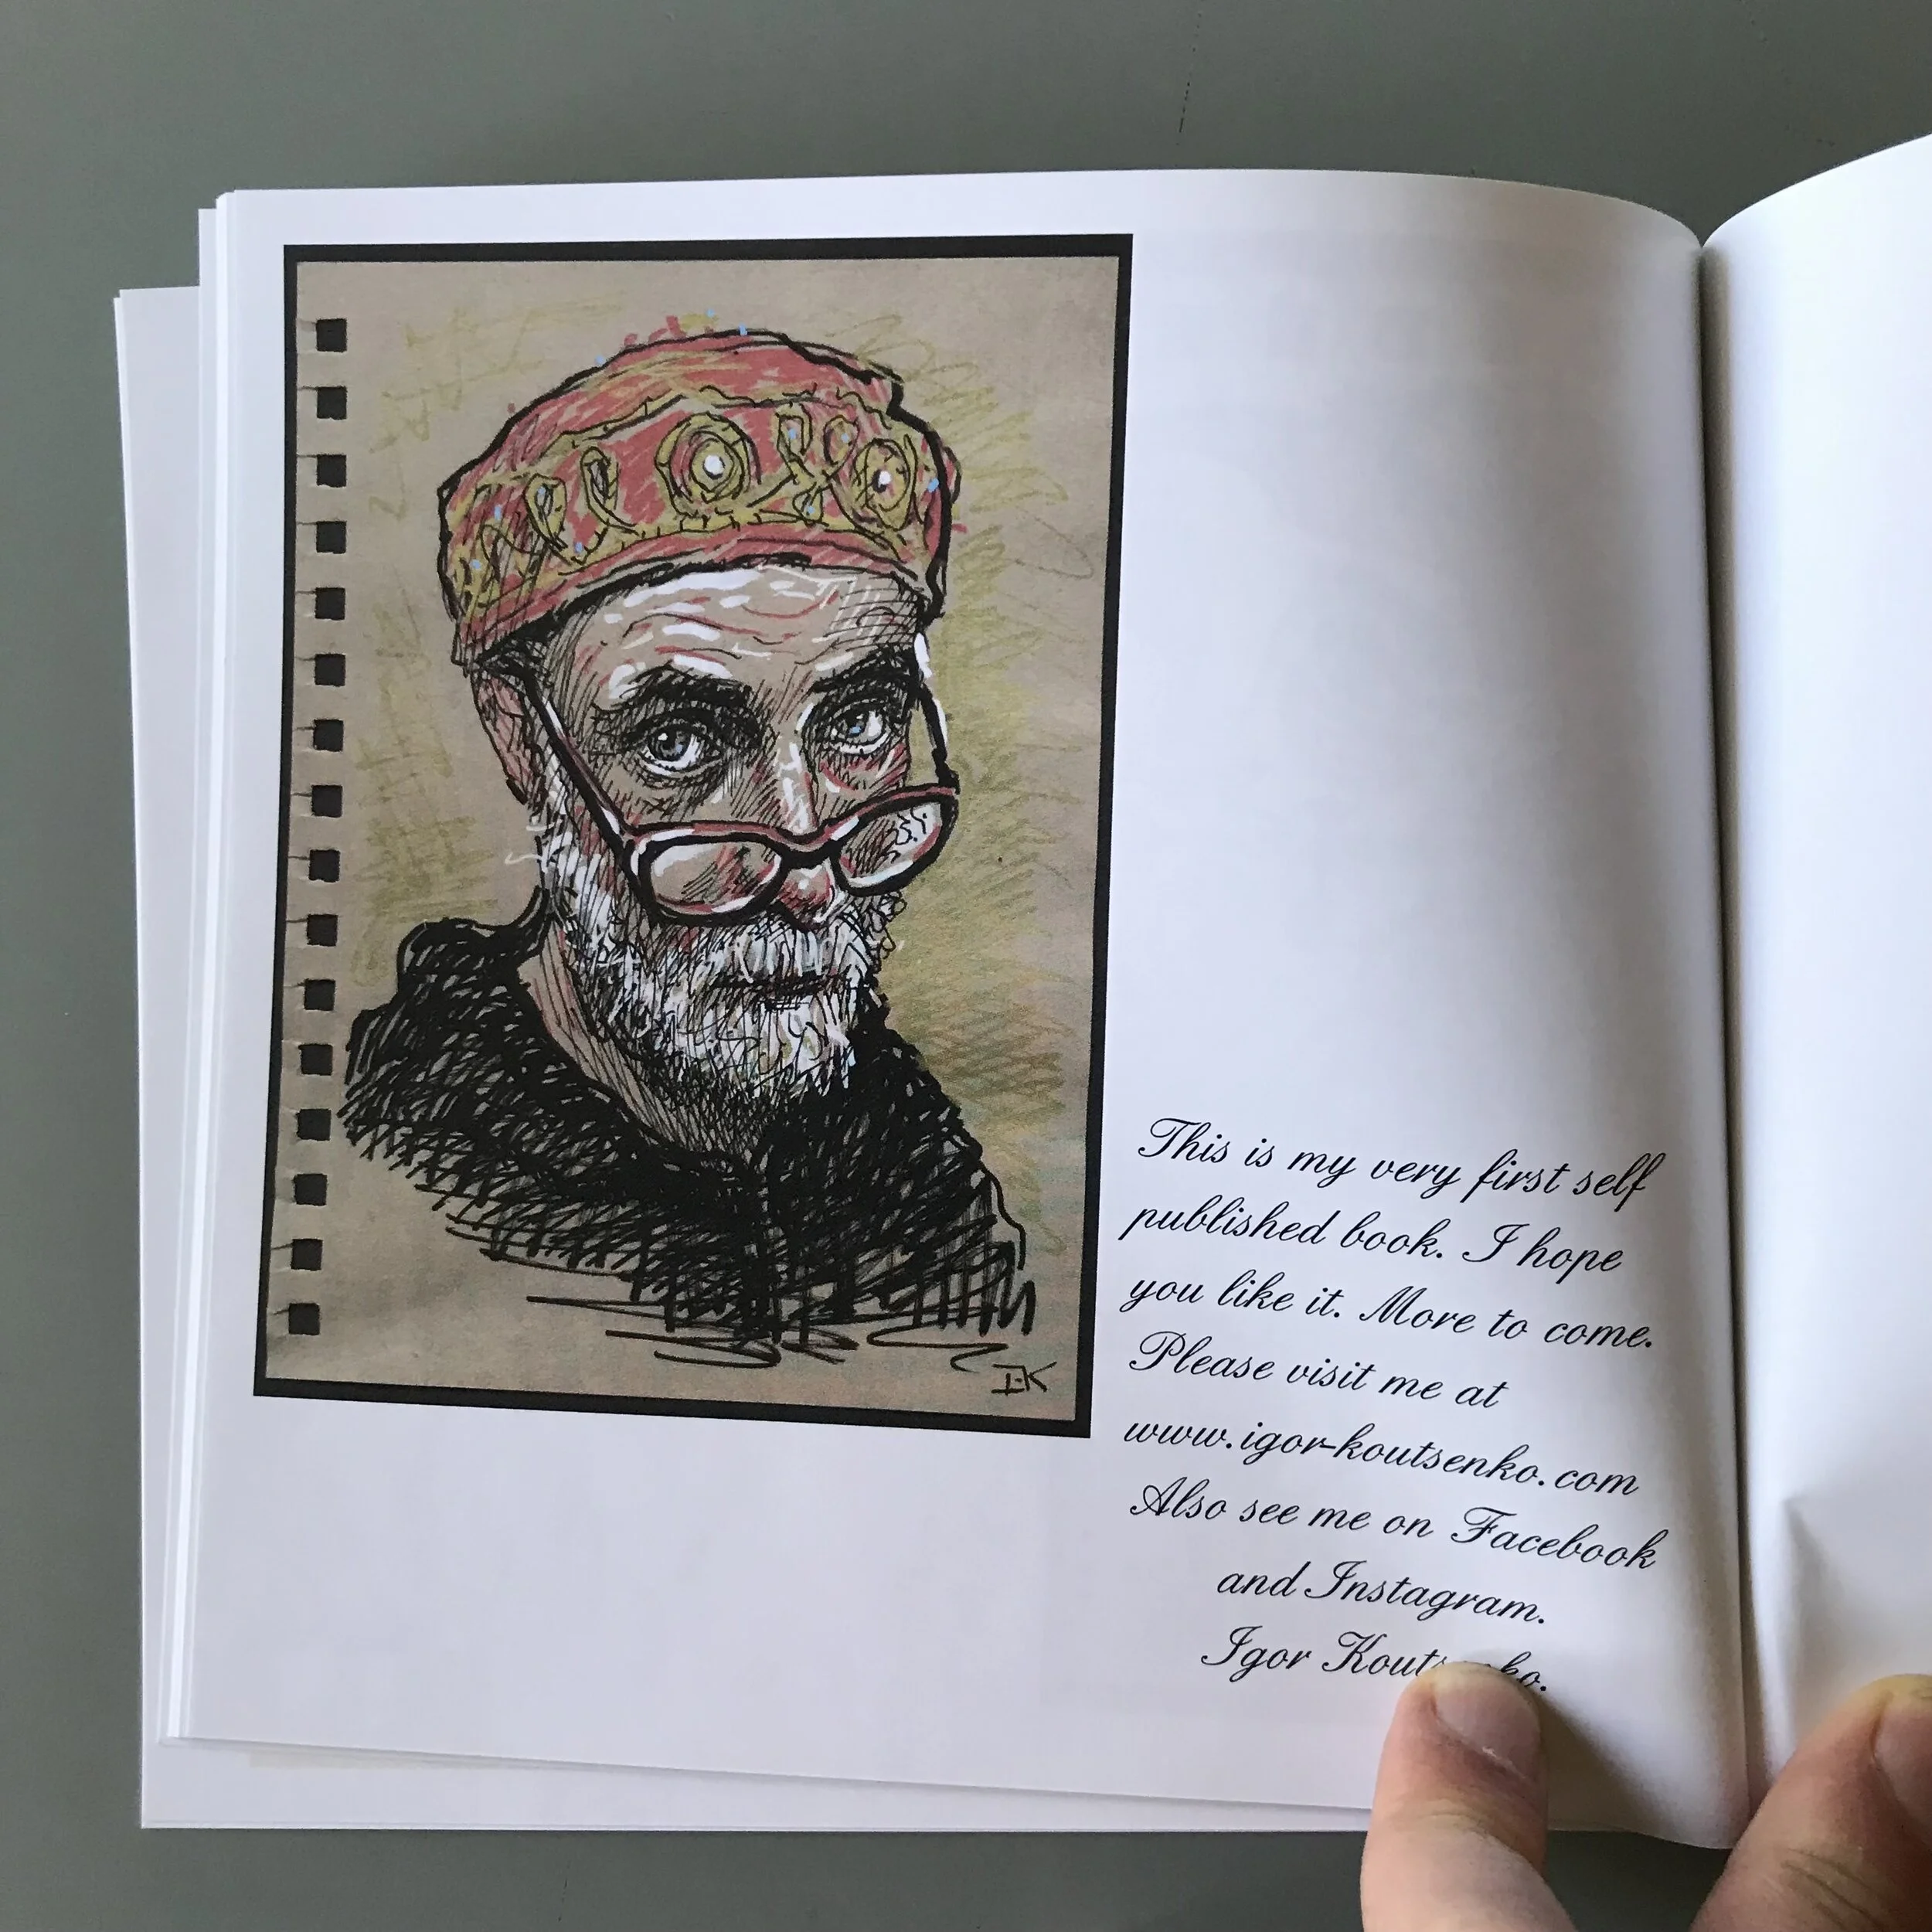 I-K
This is my very first self
published book. I hope
you like it. More to come.
Please visit me at
www.igor-koutsenko.com
Also see me on Facebook
and Instagram.
Igor